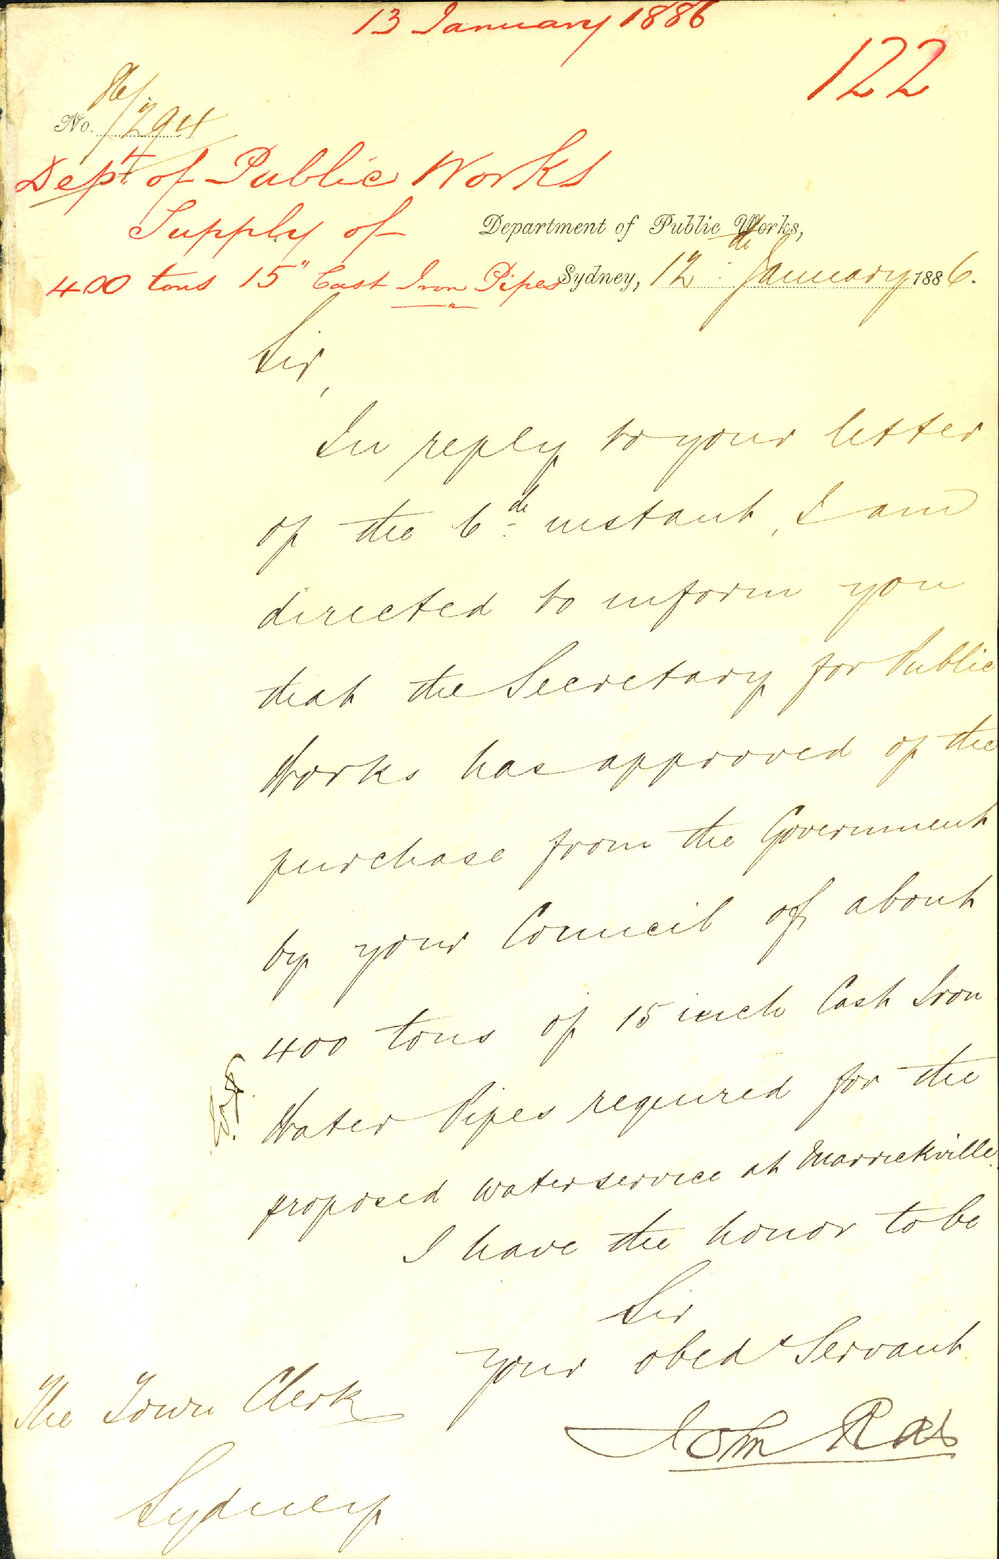 13 January 1886
122
No. 86/294
Dept. of Public Works
Supply of
400 tons 15" Cast Iron Pipes
Department of Public Works,
Sydney, 12th January 1886.
Sir,
In reply to your letter
of the 6th instant, I am
directed to inform you
that the Secretary for Public
Works has approved of the
purchase from the Government
by your Council of about
400 tons of 15 inch Cast Iron
Water Pipes required for the
proposed water service at Marrickville.
I have the honor to be
Sir
Your obedt Servant
John Rae
The Town Clerk
Sydney